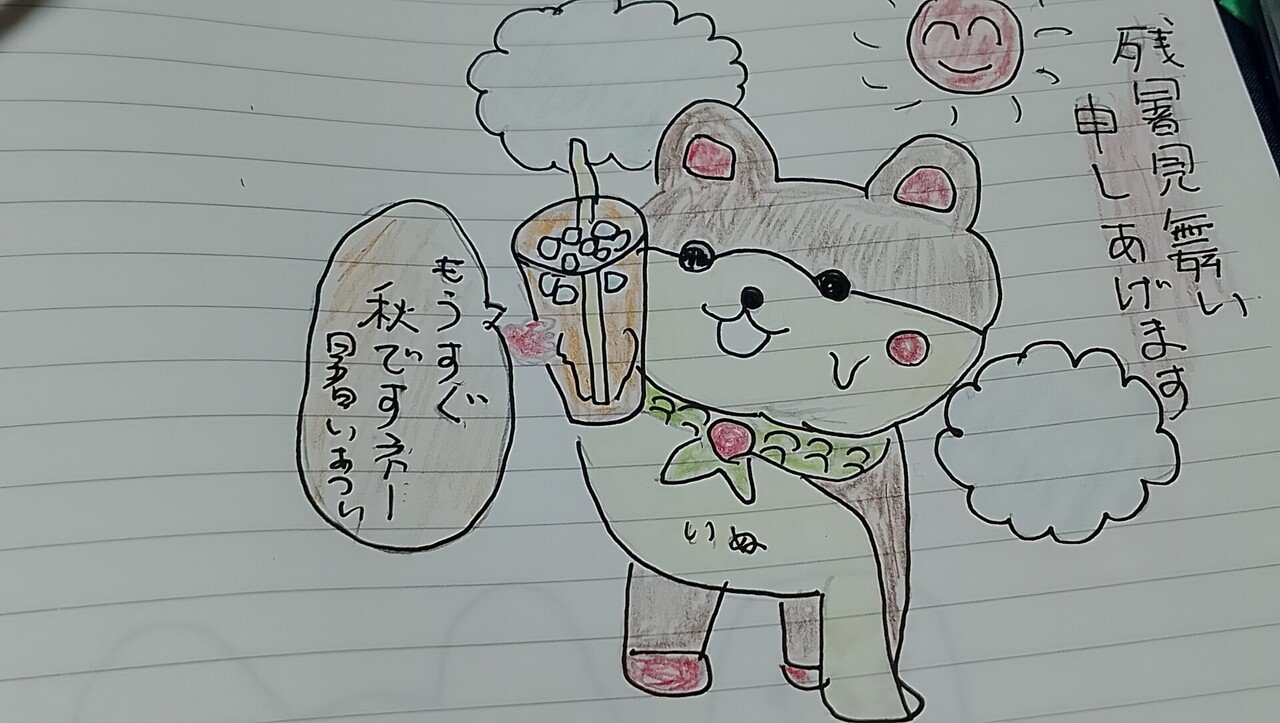 残暑見舞い
申しあげます
もうすぐ
秋ですネー
暑いあつい
いぬ